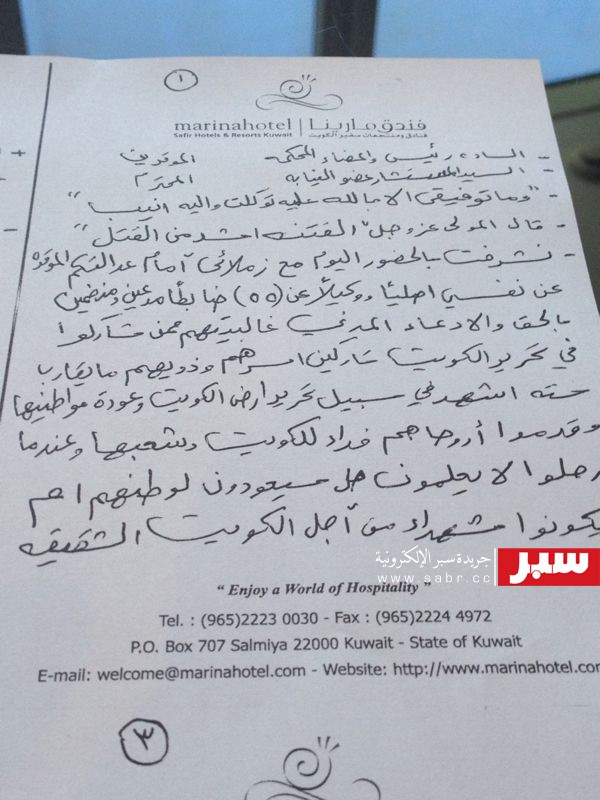 ١
marinahotel | فندق مارينا
Safir Hotels & Resorts Kuwait فنادق ومنتجعات سفير الكويت
- السادة رئيس واعضاء المحكمة الموقرين
- السيد المستشار عضو النيابة المحترم
- "وما توفيقي الا بالله عليه توكلت واليه انيب"
- قال المولى عز وجل "الفتنة اشد من القتل"
- تشرفت بالحضور اليوم مع زملائي أمام عدالتكم الموقرة
عن نفسي اصليا ووكيلاً عن (٥٥) ضابطاً مدعين ومنضمين
بالحق والادعاء المدني غالبيتهم ممن شاركوا
في تحرير الكويت تاركين اسرهم وذويهم ما يقارب
ستة اشهر في سبيل تحرير ارض الكويت وعودة مواطنيها
وقدموا أرواحهم فداء للكويت وشعبها وعندما
رحلوا لا يعلمون هل سيعودون لوطنهم ام
يكونوا شهداء من أجل الكويت الشقيقه
جريدة سبر الإلكترونية
www.sabr.cc
سبر
" Enjoy a World of Hospitality "
Tel. : (965)2223 0030 - Fax : (965)2224 4972
P.O. Box 707 Salmiya 22000 Kuwait - State of Kuwait
E-mail: welcome@marinahotel.com - Website: http://www.marinahotel.com
٣